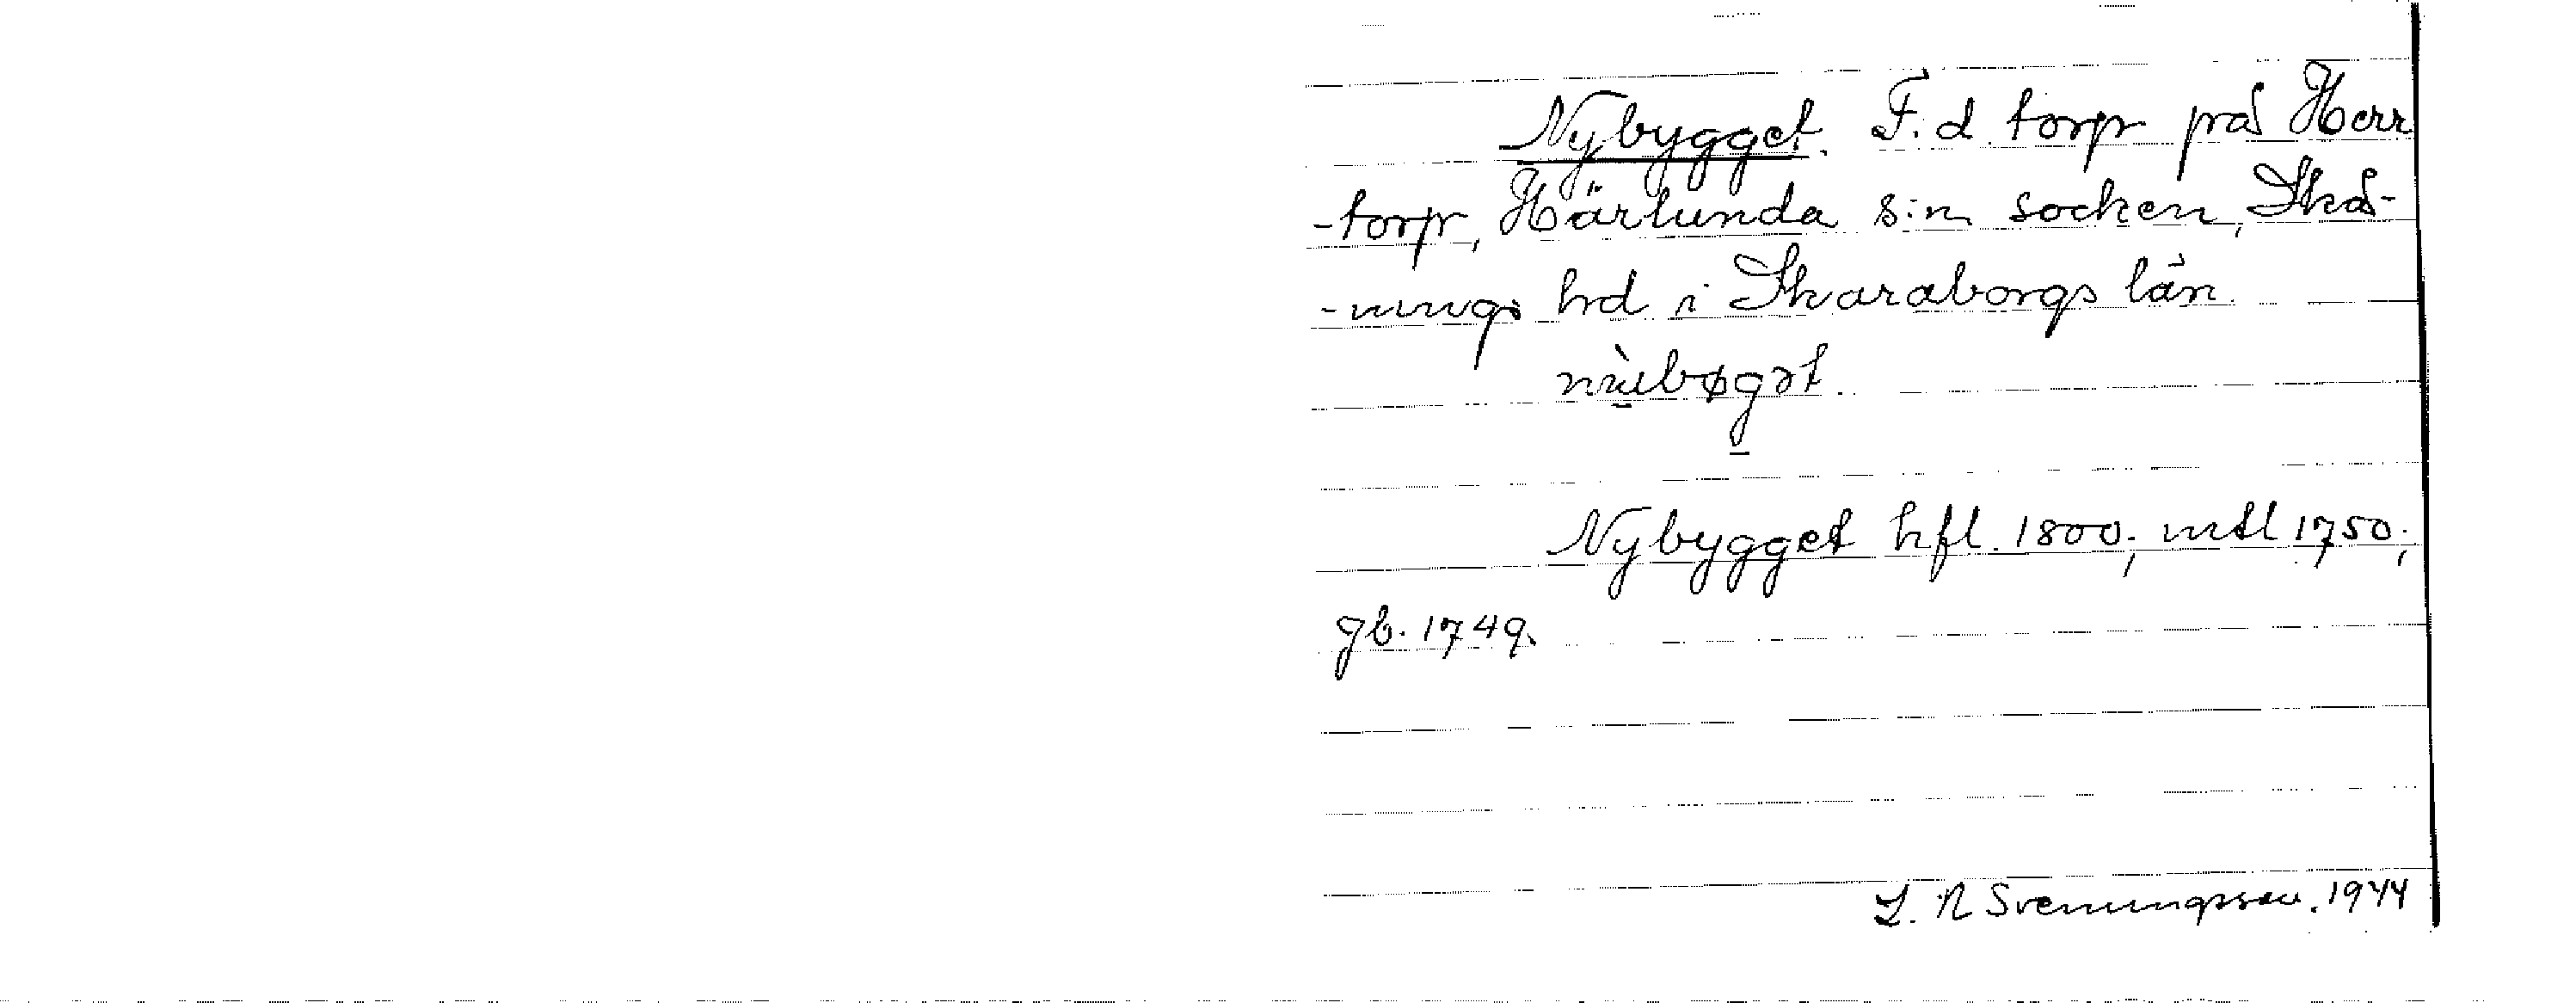 Nybygget. F.d torp på Herr
-torp, Härlunda s:n socken, Skå-
-nings hd i Skaraborgs län.
Nybygget hfl. 1800; mtl 1750;
gb. 1749.
L. N Svenungsson. 1944